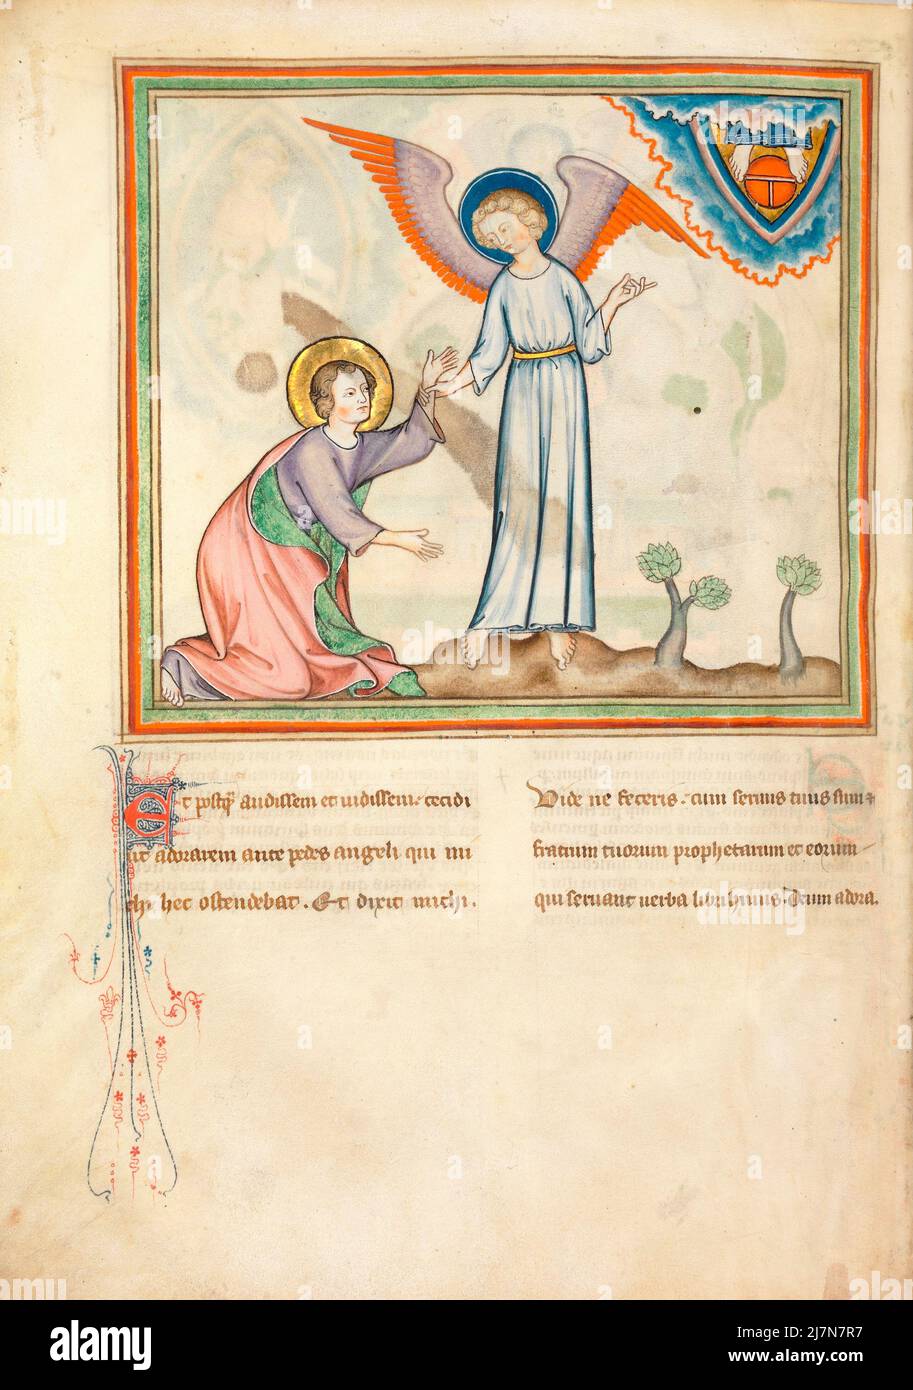 Et postq̄ audissem et uidissem. cecidi
ut adorarem ante pedes angeli qui mi
chi hec ostendebat. Et dixit michi.
Vide ne feceris. cum seruus tuus sum
fratrum tuorum prophetarum et eorum
qui seruant uerba libri huius. Deum adora.
alamy
Image ID: 2J7N7R7
www.alamy.com